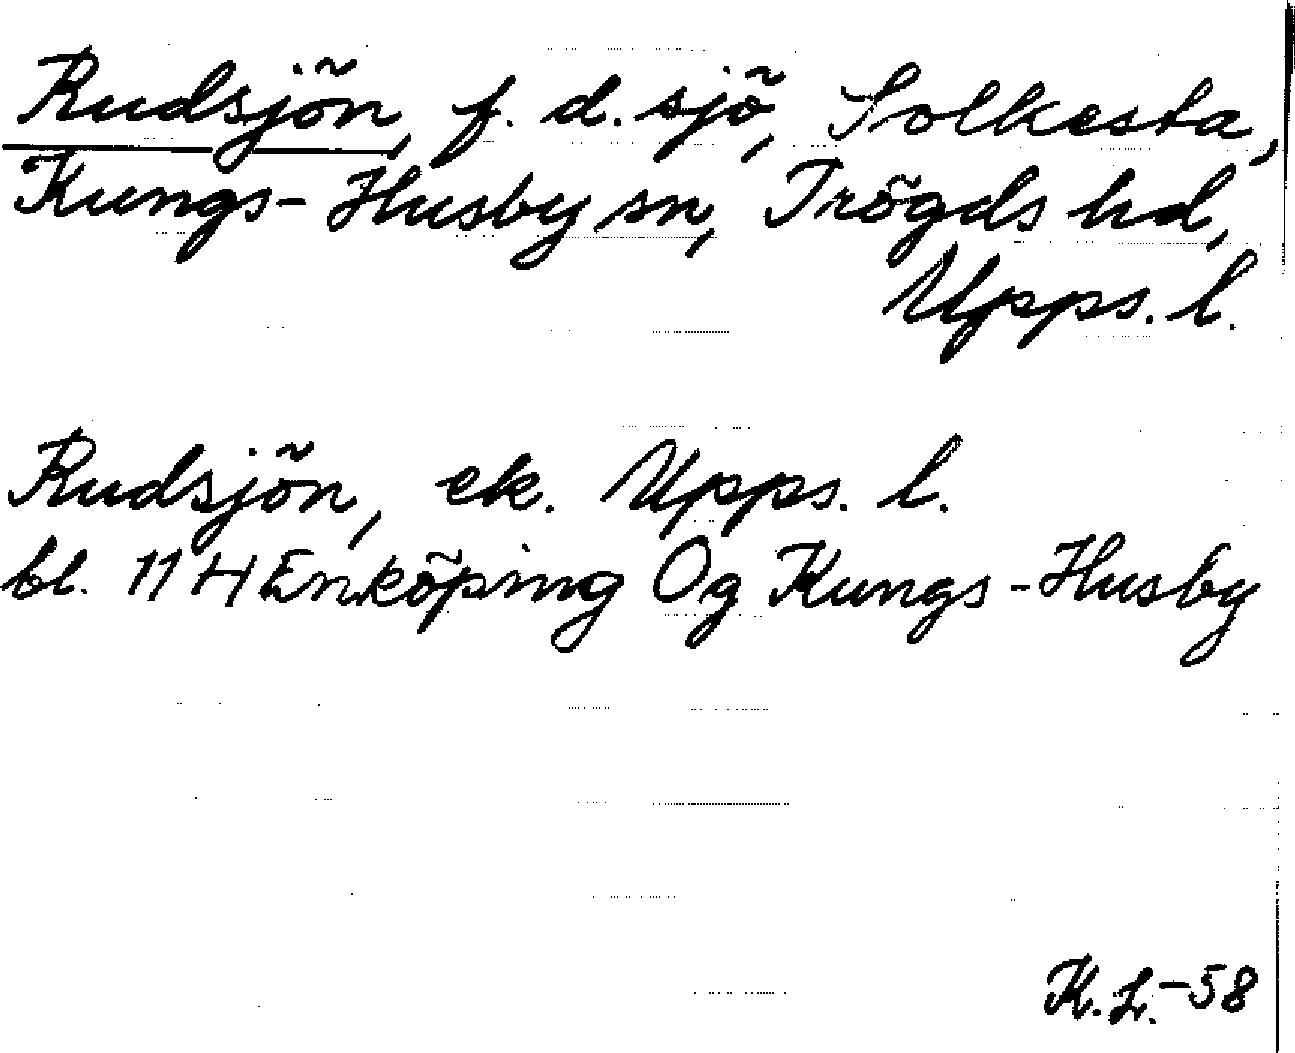 Rudsjön, f. d. sjö, Solkesta,
Kungs-Husby sn, Trögds hd,
Upps. l.
Rudsjön, ek. Upps. l.
bl. 11 H Enköping Og Kungs-Husby
K. L. -58